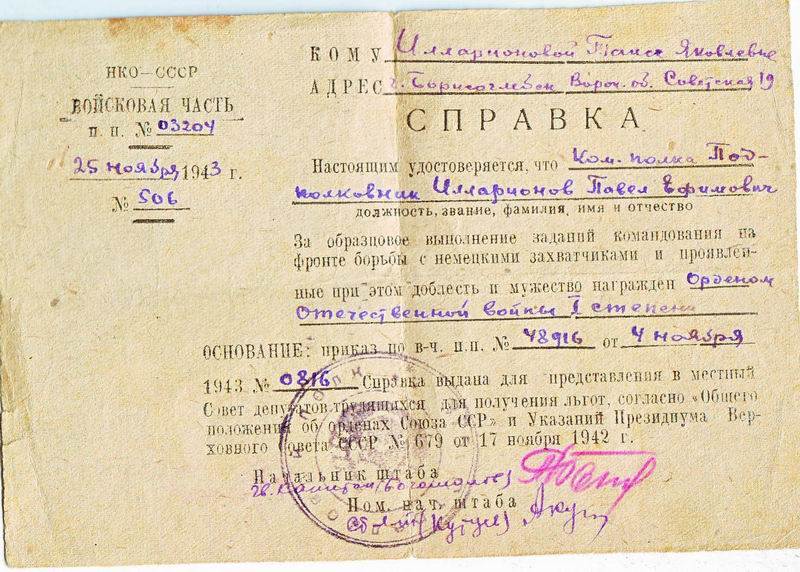 НКО—СССР
ВОЙСКОВАЯ ЧАСТЬ
п. п. № 03204
25 ноября 1943 г.
№ 506
КОМУ Илларионовой Таисе Яковлевне
АДРЕС г. Борисоглебск Ворон. об. Советская 19
СПРАВКА
Настоящим удостоверяется, что Ком. полка Под-
полковник Илларионов Павел Ефимович
должность, звание, фамилия, имя и отчество
За образцовое выполнение заданий командования на
фронте борьбы с немецкими захватчиками и проявлен-
ные при этом доблесть и мужество награжден Орденом
Отечественной войны I степени
ОСНОВАНИЕ: приказ по в-ч. п.п. № 48916 от 4 ноября
1943 № 0816 Справка выдана для представления в местный
Совет депутатов трудящихся для получения льгот, согласно «Общего
положения об орденах Союза ССР» и Указаний Президиума Вер-
ховного Совета СССР № 679 от 17 ноября 1942 г.
Начальник штаба
гв. капитан
Пом. нач. штаба